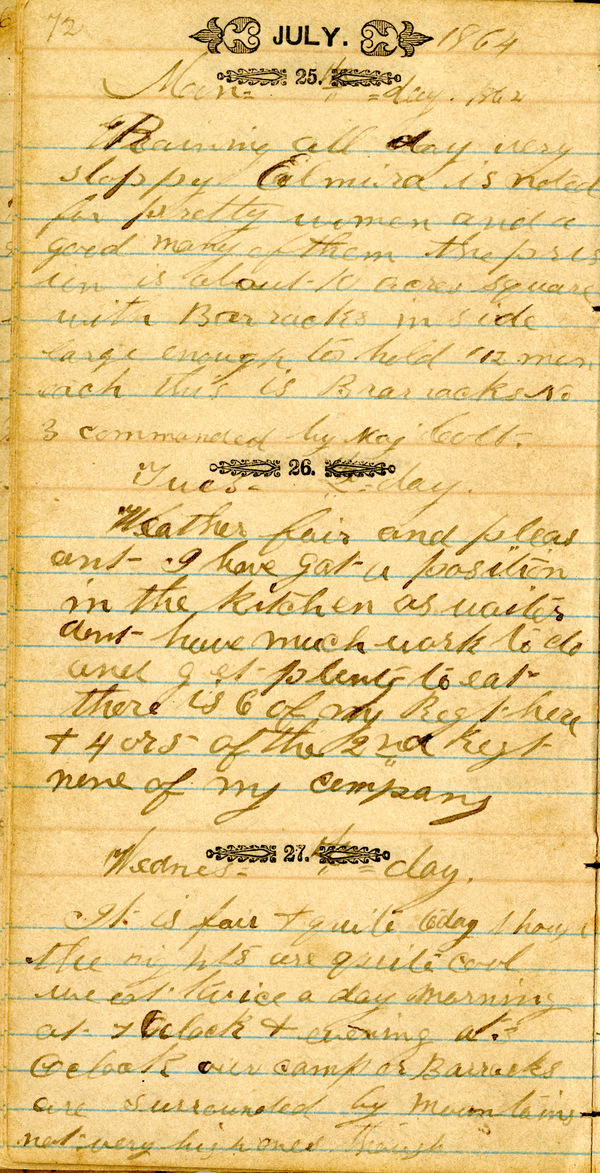 72 JULY. 1864
25.
Mon= =day. 1864
Raining all day very
sloppy Elmira is noted
for pretty women and a
good many of them the pris
ion is about 10 acres square
with Barracks in side
large enough to hold 112 men
each this is Brarracks No
3 commanded by Maj Colt.
26.
Tues= =day.
Weather fair and pleas
ant I have got a position
in the kitchen as waiter
dont have much work to do
and get plenty to eat
there is 6 of my Regt here
+ 4 ors of the 2nd Regt
none of my company
27.
Wednes= =day.
It is fair + quite today though
the nights are quite cool
we eat twice a day morning
at 7 Oclock + evening at 3
Oclock our camp or Barracks
are surrounded by mountains
not very high ones though